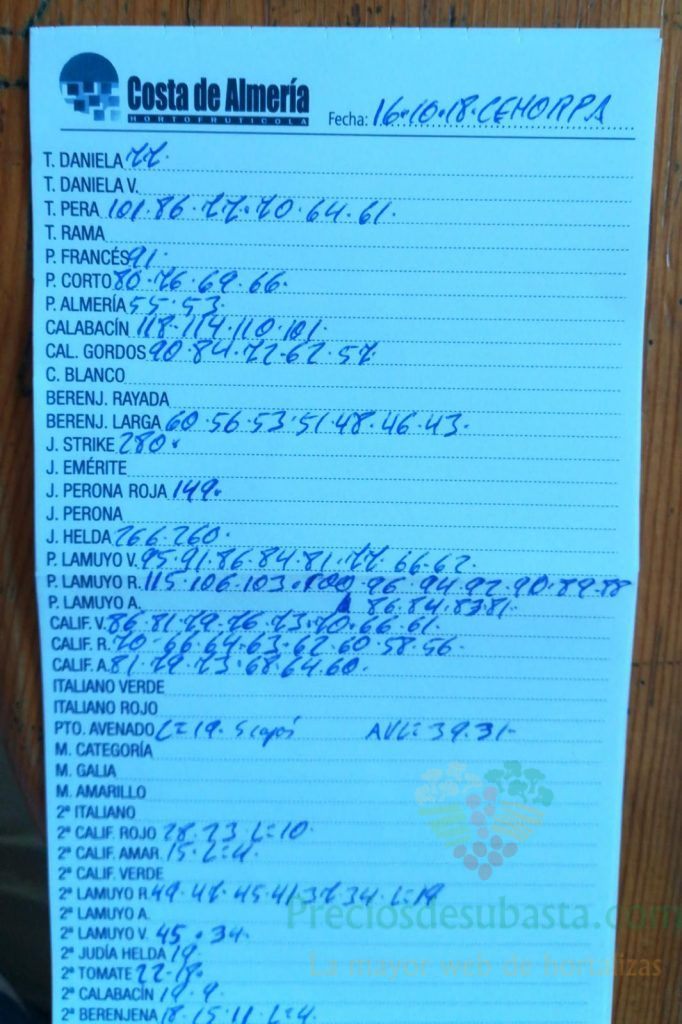 Costa de Almería
HORTOFRUTICOLA
Fecha: 16.10.18.CEHORPA
T. DANIELA 77.
T. DANIELA V.
T. PERA 101.86.77.70.64.61.
T. RAMA
P. FRANCÉS 91.
P. CORTO 80.76.69.66.
P. ALMERÍA 55.53.
CALABACÍN 118.114.110.101.
CAL. GORDOS 90.84.72.62.57.
C. BLANCO
BERENJ. RAYADA
BERENJ. LARGA 60.56.53.51.48.46.43.
J. STRIKE 280.
J. EMÉRITE
J. PERONA ROJA 149.
J. PERONA
J. HELDA 266.260.
P. LAMUYO V. 95.91.86.84.81.77.66.62.
P. LAMUYO R. 115.106.103.100.96.94.92.90.89.88
P. LAMUYO A. 86.84.83.81.
CALIF. V. 86.81.79.76.73.70.66.61.
CALIF. R. 70.66.64.63.62.60.58.56.
CALIF. A. 81.79.73.68.64.60.
ITALIANO VERDE
ITALIANO ROJO
PTO. AVENADO L=19. AVL=39.31-
M. CATEGORÍA
M. GALIA
M. AMARILLO
2ª ITALIANO
2ª CALIF. ROJO 28.23 L=10.
2ª CALIF. AMAR. 15. L=4.
2ª CALIF. VERDE
2ª LAMUYO R. 49.47.45.41.37.34. L=19
2ª LAMUYO A.
2ª LAMUYO V. 45.34.
2ª JUDÍA HELDA 19.
2ª TOMATE 22.18.
2ª CALABACÍN 19.9.
2ª BERENJENA 18.15.11. L=4.
Preciosdesubasta.com
La mayor web de hortalizas